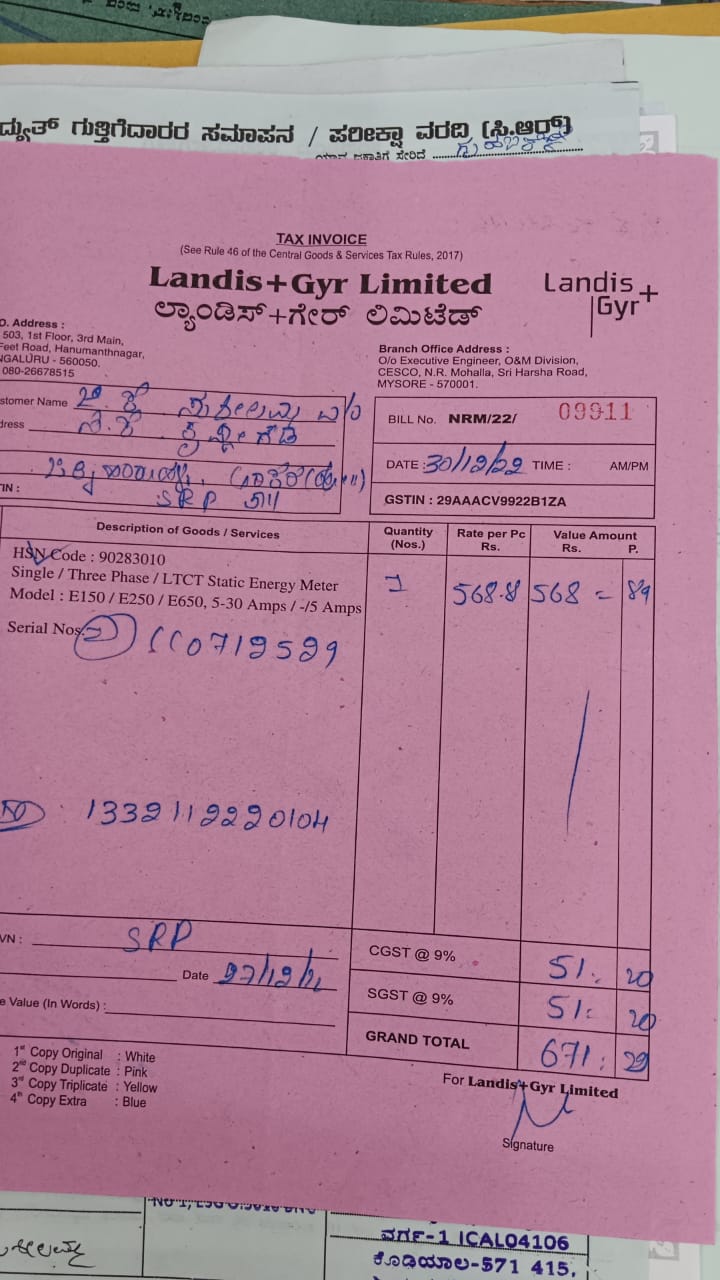 ದ್ಯುತ್ ಗುತ್ತಿಗೆದಾರರ ಸಮಾಪನ / ಪರೀಕ್ಷಾ ವರದಿ (ಸಿ.ಆರ್)
ಸೇರಿದೆ
TAX INVOICE
(See Rule 46 of the Central Goods & Services Tax Rules, 2017)
Landis+Gyr Limited
ಲ್ಯಾಂಡಿಸ್+ಗೇರ್ ಲಿಮಿಟೆಡ್
Landis+
Gyr
O. Address :
503, 1st Floor, 3rd Main,
Feet Road, Hanumanthnagar,
NGALURU - 560050.
080-26678515
Branch Office Address :
O/o Executive Engineer, O&M Division,
CESCO, N.R. Mohalla, Sri Harsha Road,
MYSORE - 570001.
stomer Name
dress
TIN :
SRP
BILL No. NRM/22/ 09911
DATE : 30/12/22 TIME : AM/PM
GSTIN : 29AAACV9922B1ZA
Description of Goods / Services Quantity (Nos.) Rate per Pc Rs. Value Amount Rs. P.
HSN Code : 90283010
Single / Three Phase / LTCT Static Energy Meter
Model : E150 / E250 / E650, 5-30 Amps / -/5 Amps
1 568.8 568 = 89
Serial Nos.
1332112220104
VN : SRP
Date
e Value (In Words) :
CGST @ 9% 51 : 20
SGST @ 9% 51 : 20
GRAND TOTAL 671 : 29
1st Copy Original : White
2nd Copy Duplicate : Pink
3rd Copy Triplicate : Yellow
4th Copy Extra : Blue
For Landis+Gyr Limited
Signature
ವರ್ಗ-1 ICAL04106
ಕೊಡಿಯಾಲ-571 415.